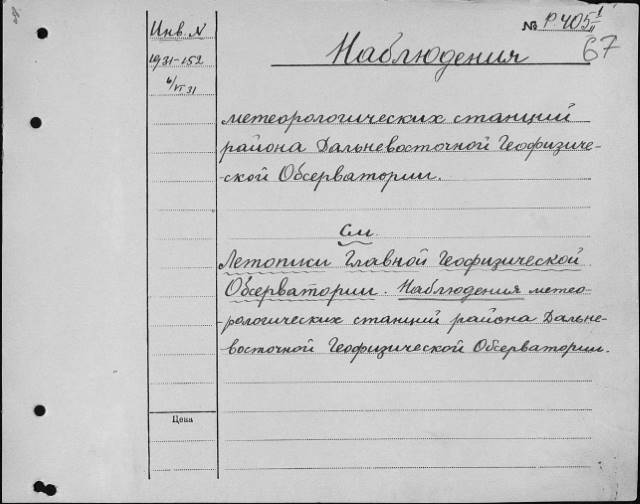 Инв. N
1931-152
6/VI 31
№ Р 405 I/II
67
Наблюдения
метеорологических станций
района Дальневосточной Геофизиче-
-ской Обсерватории.
См
Летописи Главной Геофизической
Обсерватории. Наблюдения метео-
-рологических станций района Дальне-
восточной Геофизической Обсерватории.
Цена